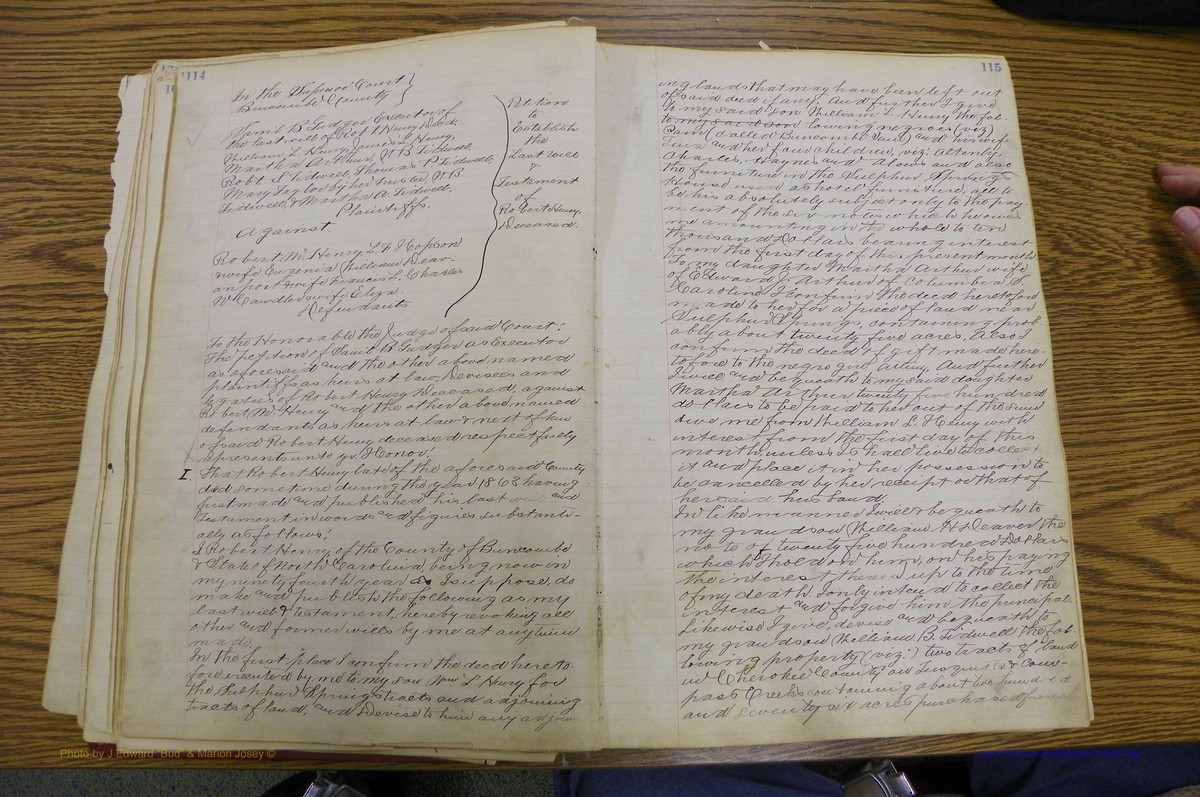 114
In the Superior Court
Buncombe County
Saml B Gudger Executor of
the last will of Robt Henry Decd.
William L. Henry, James L. Henry,
Martha A. Arthur, W. B. Tidwell,
Robt. L. Tidwell, Thomas P. Tidwell,
Mary Taylor by her trustee, W. B.
Tidwell, & Martha A. Tidwell,
Plaintiffs.
Against
Robert M. Henry, L. F. Hopson
& wife Eugenia, William Deav-
er
& wife Francis L. Charles
W Candler & wife Eliza.
Defendants
Petition
to
Establish
the
Last Will
&
Testament
of
Robert Henry.
Deceased.
To the Honorable the Judge of said Court:
The petition of Saml B Gudger as Executor
as aforesaid and the other above named
plaintiffs as heirs at law, Devisees and
legatees of Robert Henry Deceased, against
Robert M. Henry and the other above named
defendants as heirs at law & next of kin
of said Robert Henry deceased respectfully
represents unto yr. Honor!
I That Robert Henry late of the aforesaid County
died sometime during the year 1863 having
first made and published his last will and
Testament in words and figures substanti-
ally as follows!
I Robert Henry of the County of Buncombe
& State of North Carolina, being now in
my ninety fourth year as I suppose, do
make and publish the following as my
last will & testament, hereby revoking all
other and former wills by me at any time
made.
In the first place I confirm the deed hereto-
fore executed by me to my son Wm L. Henry for
the Sulphur Springs tracts and adjoining
tracts of land, and I devise to him any adjoin
115
ing lands that may have been left out
of said deed if any. And further I give
to my said son William L. Henry the fol-
to my said son lowing negroes (viz)
Cam (called Buncombe and his wife
and her four children, viz:
Charles, Haynes and Alonzo and also
the furniture in the Sulphur Springs
House used as hotel furniture, all to
be his absolutely subject only to the pay-
ment of the six notes which he owes
me amounting in the whole to ten
thousand Dollars bearing interest
from the first day of this present month
To my daughter Martha Arthur wife
of Edward J. Arthur of Columbia S.
Carolina I confirm the deed heretofore
made to her for a piece of land near
Sulphur Springs, containing prob-
ably about twenty five acres, Also I
confirm the deed of gift made here-
tofore to the negro girl And further
I will and bequeath to my said daughter
Martha Arthur twenty five hundred
dollars to be paid to her out of the sum
due me from William L. Henry with
interest from the first day of this
month, unless I shall live to collect
it and place it in her possession to
be cancelled by her receipt or that of
her said husband.
In like manner I will & bequeath to
my grandson William H. Deaver the
note of twenty five hundred Dollars
which I hold on him, on his paying
the interest thereon up to the time
of my death, I only intend to collect the
interest and forgive him the principal.
Likewise I give, devise and bequeath to
my grandson William B. Tidwell the fol-
lowing property (viz:) two tracts of land
in Cherokee County on and
Creeks containing about two hundred
and seventy six acres purchased from
Photo by J Edward "Bud" & Marion Josey ©